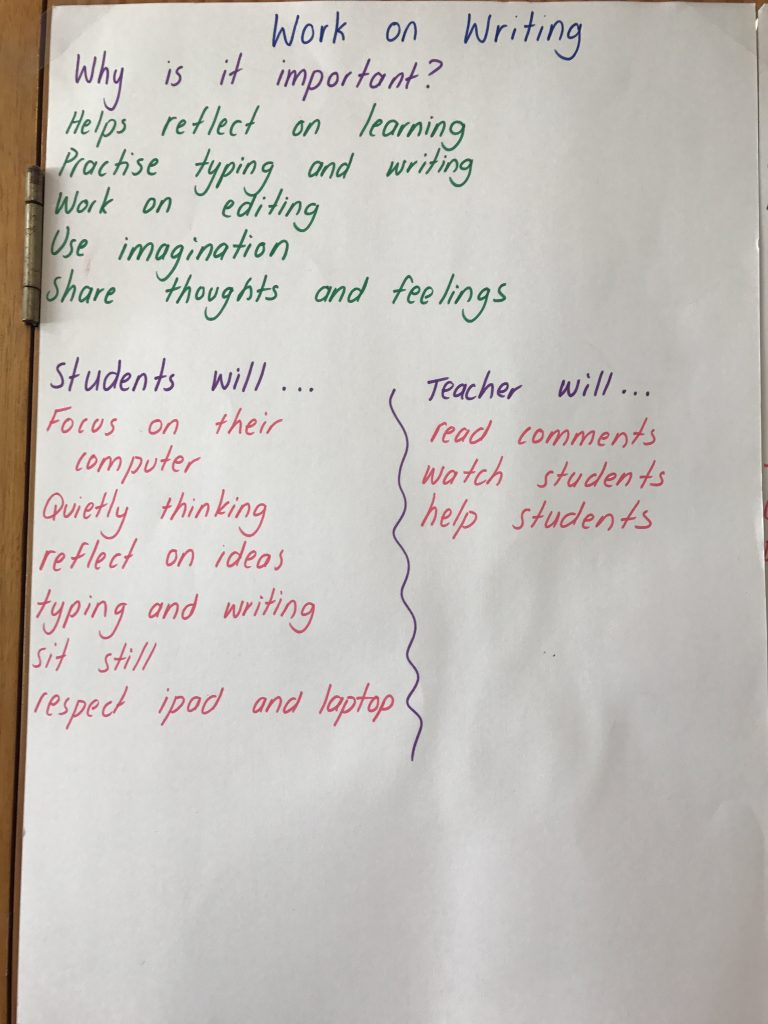 Work on Writing
Why is it important?
Helps reflect on learning
Practise typing and writing
Work on editing
Use imagination
Share thoughts and feelings
Students will...
Focus on their
computer
Quietly thinking
reflect on ideas
typing and writing
sit still
respect ipad and laptop
Teacher will...
read comments
watch students
help students